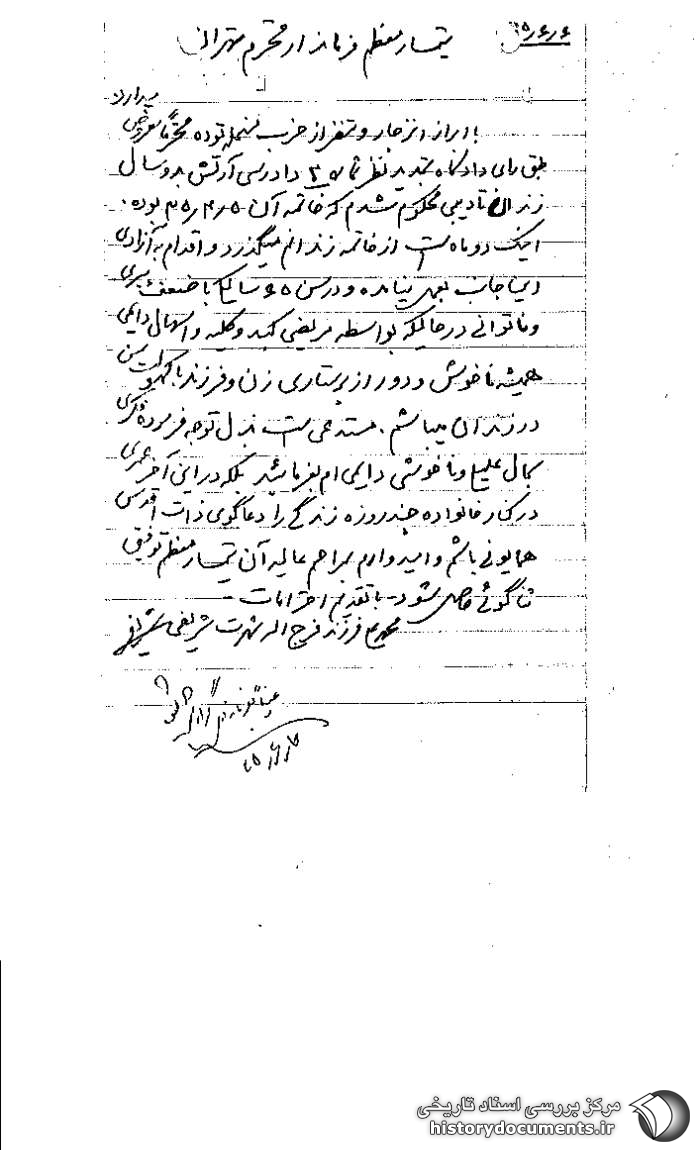 ۳۵/۶/۶
تیمسار معظم فرماندار محترم تهران
میدارد
با ابراز انزجار و تنفر از حزب منحله توده محترماً معروض
طبق رای دادگاه تجدید نظر شماره ۲ دادرسی ارتش بدو سال
زندان تادیبی محکوم شدم که خاتمه آن ۳۵/۴/۵ بوده
اینک دو ماه است از خاتمه زندانم میگذرد و اقدام به آزادی
اینجانب بعمل نیامده و در سن ۶۵ سالگی با ضعف پیری
و ناتوانی در حالیکه بواسطه مریضی کبد و کلیه و اسهال دایمی
همیشه ناخوش و دور از پرستاری زن و فرزند با کهولت سن
در زندان میباشم. مستدعی است بذل توجه فرموده فکری
بحال علیل و ناخوشی دایمی ام بفرمائید بلکه در این آخر عمری
در کنار خانواده چند روزه زندگی را دعاگوی ذات اقدس
همایونی باشم و امیدوارم بمراحم عالیه آن تیمسار معظم توفیق
ثناگوئی حاصل شود - با تقدیم احترامات -
فرزند فرج اله شهرت شریفی
عیناً بفرمانداری گزارش شود
۳۵/۶/
مرکز بررسی اسناد تاریخی
historydocuments.ir